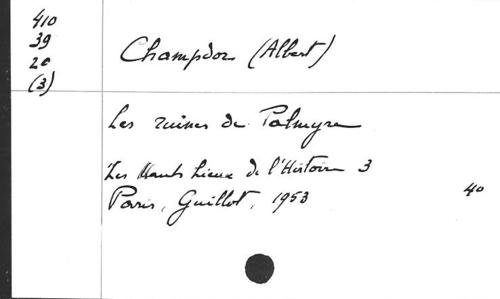 410
39
20
(3)
Champdor (Albert)
Les ruines de Palmyre
Les Hauts Lieux de l'Histoire 3
Paris, Guillot, 1953
40